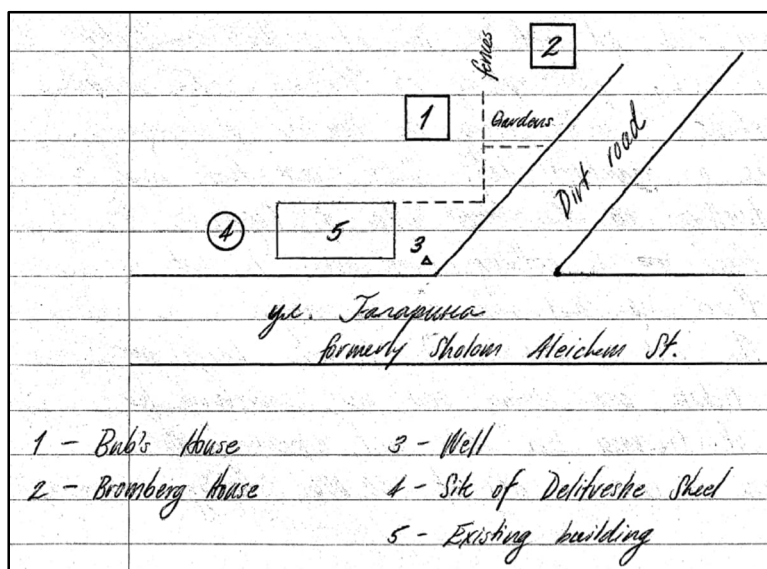 2
fences
1
Gardens
Dirt road
4
5
3
ул. Гагарина
formerly Sholom Aleichem St.
1 - Bub's House
3 - Well
2 - Bromberg House
4 - Site of Delitveshe Sheel
5 - Existing building